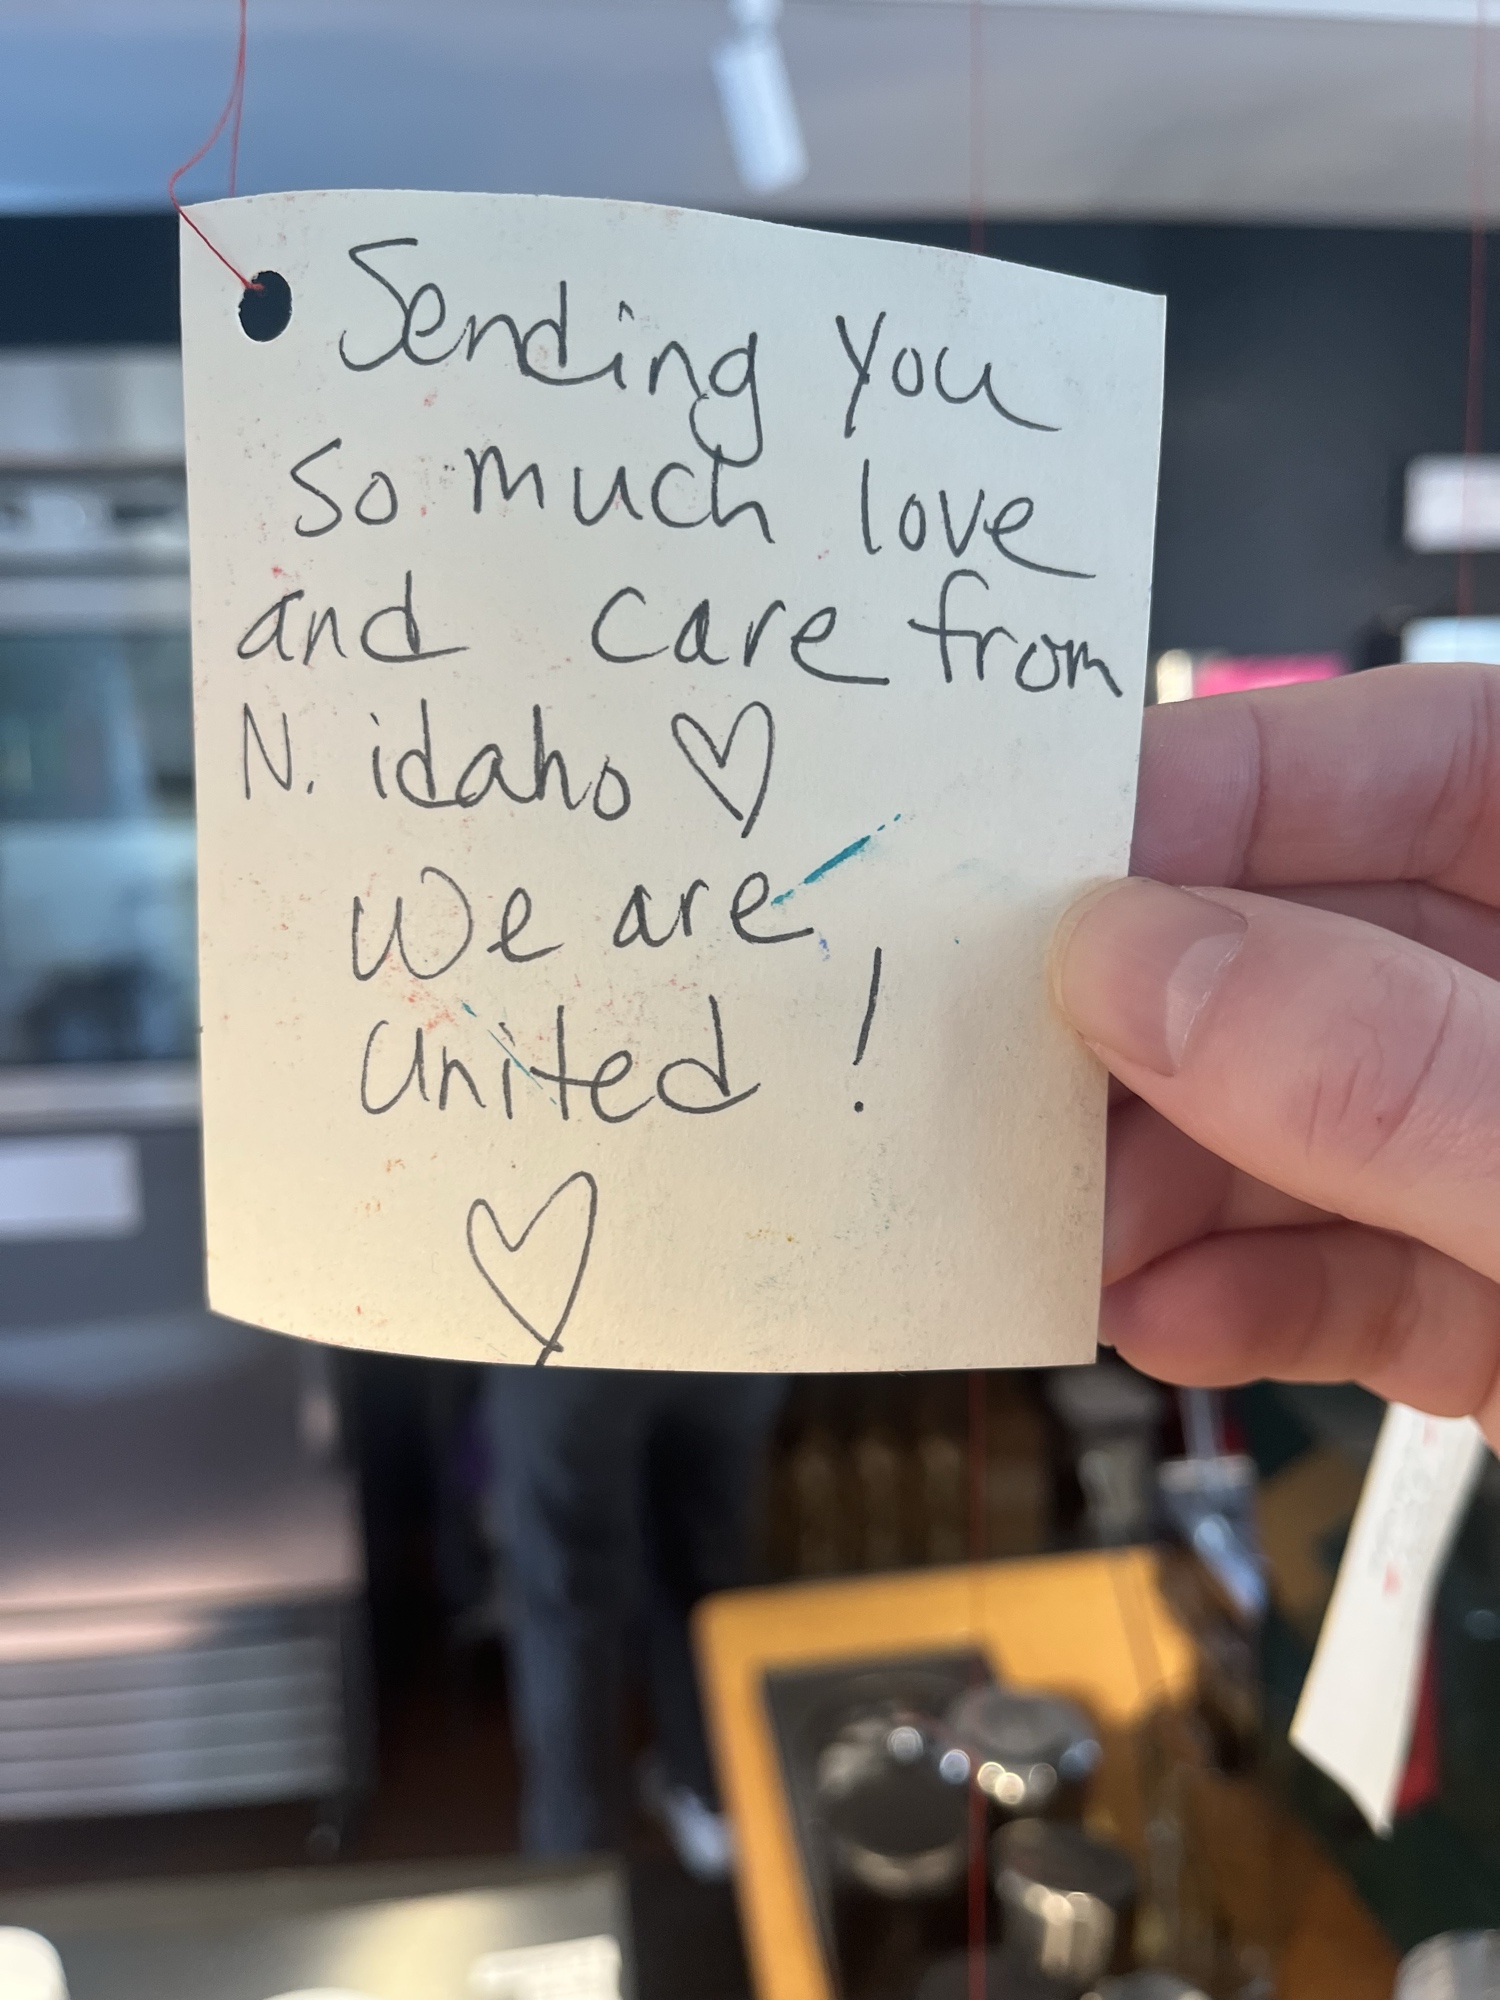 Sending you
so much love
and care from
N. idaho ♡
We are
United !
♡